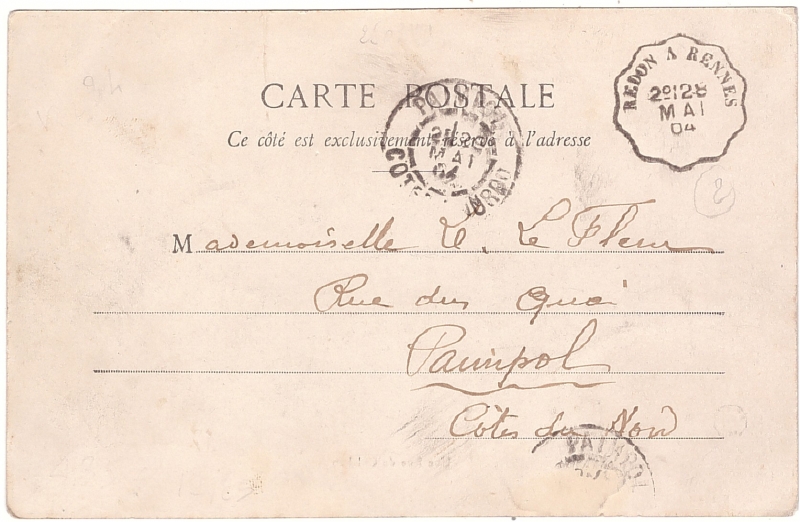 REDON A RENNES
2º 28
MAI
04
CARTE POSTALE
Ce côté est exclusivement réservé à l'adresse
MAI
CÔTES DU NORD
Mademoiselle Le Fleur
Rue du Quai
Paimpol
Côtes du Nord